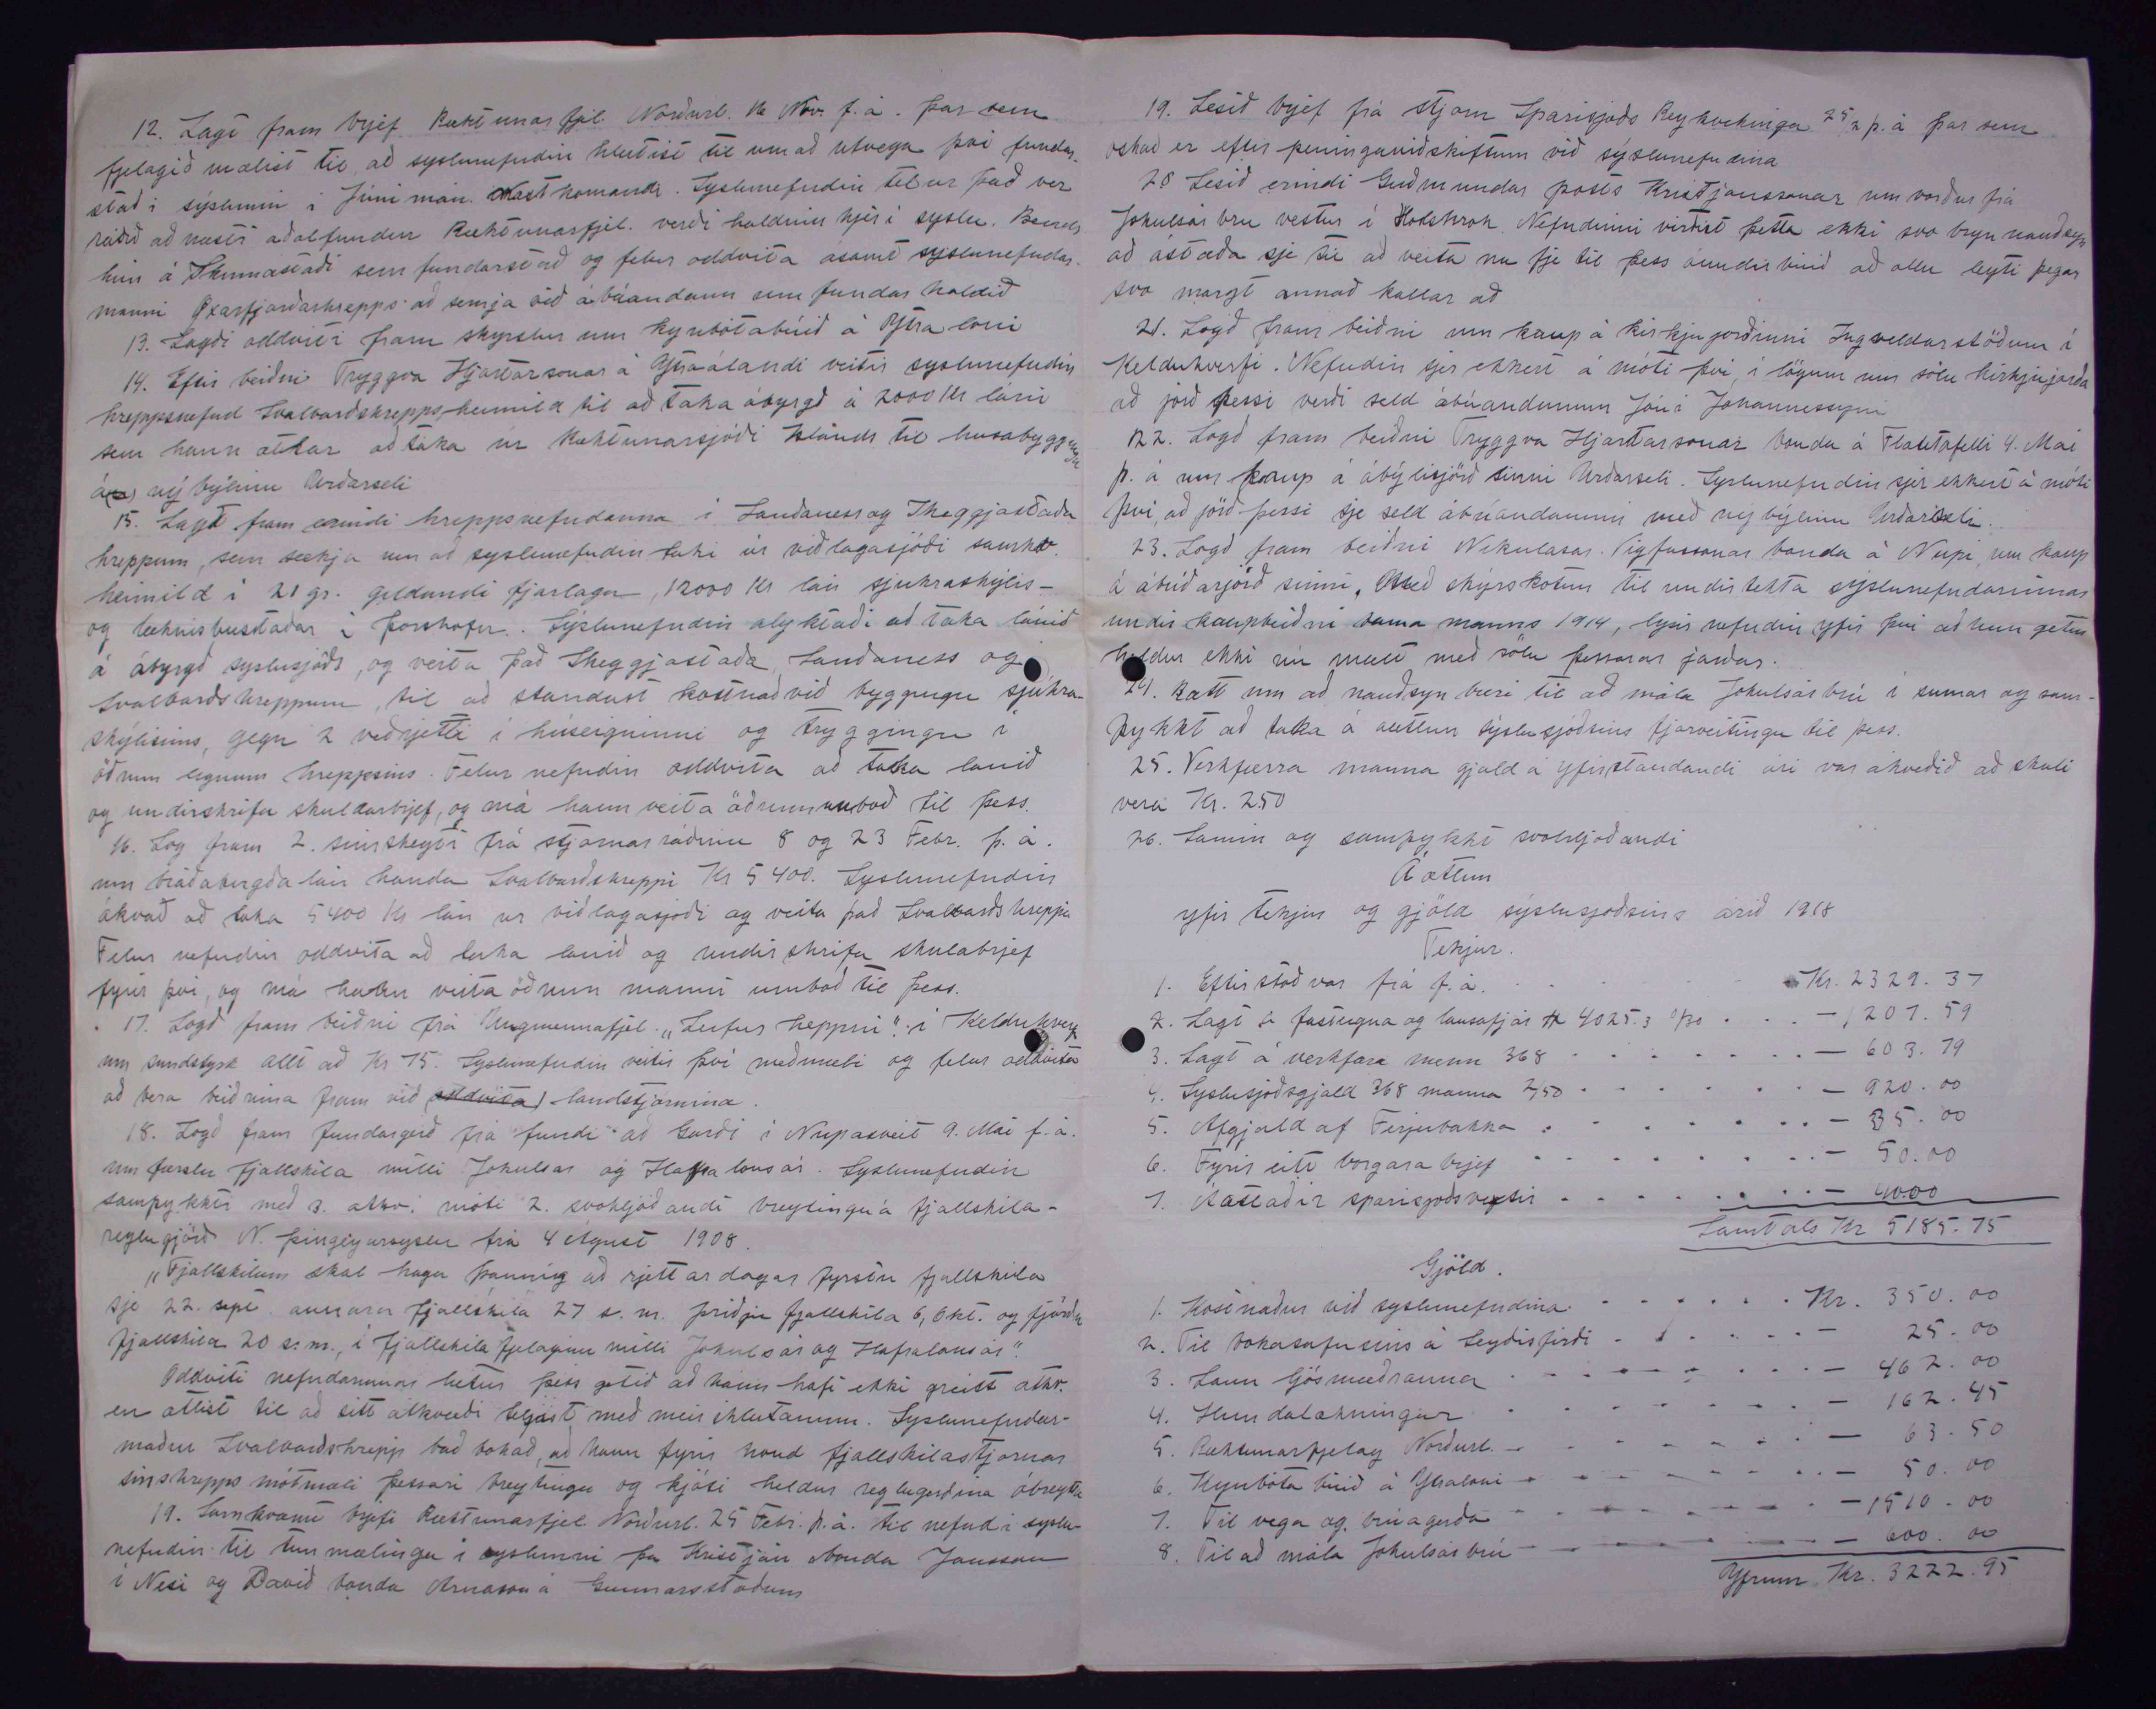 12. Lagt fram brjef Ræktunarfjel. Norðurl. Nov. f.á. þar sem
fjelagið mælist til, að syslunefndin hlutist til um að utvega því fundar-
stað i sýslunni i Júni mán. næstkomandi. Syslunefndin telur það vel
ráðið að næsti aðalfundur Ræktunarfjel. verði haldinn hjer i syslu. Bendir
hún á Skinnastaði sem fundarstað og felur oddvita ásamt syslunefndar-
manni Öxarfjarðarhrepps að semja við ábúandann sem fundar haldið
13. Lagði oddviti fram skyrslur um kynbótabúið á Ytra loni
14. Eftir beiðni Tryggva Hjartarsonar á Ytraálandi veitir syslunefndin
hreppsnefnd Svalbarðshrepps heimild til að taka ábyrgð á 2000 Kr láni
sem hann ætlar að taka úr Ræktunarsjóði Islands til husabygginga
á nýbýlinu Urðarseli
15. Lagt fram erindi hreppsnefndanna i Sauðaness og Skeggjastaða
hreppum, sem sækja um að syslunefndin taki úr viðlagasjóði samkv.
heimild i 21 gr. gildandi fjarlaga, 12000 Kr lán sjukraskýlis-
og læknisbustaðar i Þorshöfn. Syslunefndin alyktaði að taka lánið
á ábyrgð syslusjóðs, og veita það Skeggjastaða, Sauðaness og
Svalbarðshreppum, til að standast kostnað við byggingu sjúkra-
skýlisins, gegn 2 veðrjetti i húseigninni og tryggingu i
öðrum eignum hreppsins. Felur nefndin oddvita að taka lanið
og undirskrifa skuldarbrjef, og má hann veita öðrum umboð til þess.
16. Log fram 2. simskeyti frá stjornarráðinu 8 og 23 Febr. þ.á.
um bráðabirgða lán handa Svalbarðshreppi Kr 5400. Syslunefndin
ákvað að taka 5400 Kr lán ur viðlagasjóði og veita það Svalbarðshreppi
Felur nefndin oddvita að taka lanið og undirskrifa skulabrjef
fyrir því, og má hann veita öðrum manni umboð til þess.
17. Logð fram beiðni frá Ungmennafjel. „Leifur heppni" i Kelduhverfi
um sundstyrk allt að Kr 75. Syslunefndin veitir því meðmæli og felur oddvita
að bera beiðnina fram við (oddvita) landstjornina.
18. Logð fram fundargerð frá fundi að Garði i Nupasveit 9. Mai f.á.
um færslu fjallskila milli Jokulsar og Hafralonsár. Syslunefndin
samþykkir með 3. atkv. móti 2. svohljóðandi breytingu á fjallskila-
reglugjörð N. þingeyarsyslu frá 4 águst 1908.
„Fjallskilum skal haga þannig að rjettardagar fyrstu fjallskila
sje 22. sept. annara fjallskila 27 s.m. þriðju fjallskila 6, Okt. og fjórðu
fjallskila 20 s.m., i fjallskila fjelaginu milli Jokulsár og Hafralonsár".
Oddviti nefndarinnar lætur þess getið að hann hafi ekki greitt atkv.
en ætlist til að sitt atkvæði teljist með meirihlutanum. Syslunefndar-
maður Svalbarðshrepps bað bokað, að hann fyrir hond fjallskilastjornar
sinshrepps mótmæli þessari breytingu og kjósi heldur reglugerðina óbreytta
19. Samkvæmt brjefi Ræktunarfjel. Norðurl. 25 Febr. þ.á. til nefnd i syslu-
nefndin til tunmælinga i syslunni þa Kristján bonda Jonsson
i Nesi og Davið bonda Arnason á Gunnarsstöðum
19. Lesið brjef frá stjorn Sparisjóðs Reykvikinga 25/2 þ.á þar sem
oskað er eftir peningaviðskiftum við sýslunefndina
20 Lesið erindi Guðmundar posts Kristjanssonar um vorður frá
Jokulsár bru vestur i . Nefndinni virðist þetta ekki svo bryn nauðsyn
að ástæða sje til að veita nu fje til þess óundirbuið að ollu leyti þegar
svo margt annað kallar að
21. Logð fram beiðni um kaup á kirkjujorðinni Ingveldarstöðum i
Kelduhverfi. Nefndin sjer ekkert á móti því, i lögum um sölu kirkjujarða
að jörð þessi verði seld ábúandanum Jóni Johannessyni
22. Logð fram beiðni Tryggva Hjartarsonar bonda á Flautafelli 4. Mai
þ.á um kaup á ábýlisjörð sinni Urðarseli. Syslunefndin sjer ekkert á móti
því, að jörð þessi sje seld ábúandanum með nýbýlinu Urðarseli.
23. Logð fram beiðni Nikulasar Vigfussonar bonda á Nupi, um kaup
á ábúðarjörð sinni. Með skýrskotun til undirtekta syslunefndarinnar
undir kaupbeiðni sama manns 1914, lysir nefndin yfir því að hun getur
heldur ekki nú mælt með sölu þessarar jarðar.
24. Rætt um að nauðsyn bæri til að mála Jokulsárbrú i sumar og sam-
þykkt að taka á aætlun sýslusjóðsins fjárveitingu til þess.
25. Verkfærra manna gjald á yfirstandandi ári var ákveðið að skuli
vera Kr. 2.50
26. Samin og samþykkt svohljoðandi
Áætlun
yfir tekjur og gjöld sýslusjoðsins árið 1918
Tekjur.
1. Eftirstöðvar frá f.á. . . . . . Kr. 2329.37
2. Lagt á fasteigna og lausafjár # 4025.3 0/30 . . . — 1207.59
3. Lagt á verkfæra menn 368 . . . . . — 603.79
4. Syslusjoðsgjald 368 manna 2,50 . . . . . — 920.00
5. Afgjald af Ferjubakka . . . . . — 35.00
6. Fyrir eitt borgara brjef . . . . . — 50.00
7. Áætlaðir sparisjoðsvextir . . . . . — 40.00
Samtals Kr 5185.75
Gjöld.
1. Kostnaður við syslunefndina . . . . . Kr. 350.00
2. Til bokasafnsins á Seyðisfirði . . . . . — 25.00
3. Laun ljósmæðranna . . . . . — 462.00
4. Hundalækningar . . . . . — 162.45
5. Ræktunarfjelag Norðurl. . . . . . — 63.50
6. Kynbóta búið á Ytraloni . . . . . — 50.00
7. Til vega og brúagerða . . . . . — 1510.00
8. Til að mála Jokulsárbrú — 600.00
Yfirum Kr. 3222.95